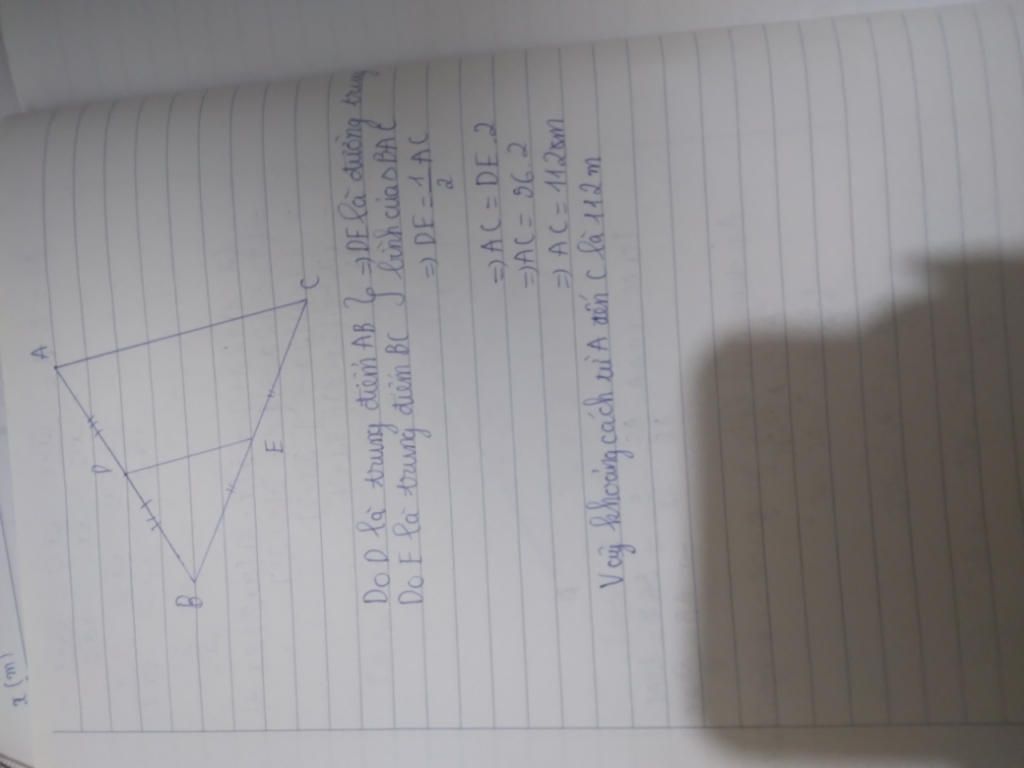 x (m)
A
D
B
E
C
Do D là trung điểm AB } => DE là đường trung
Do E là trung điểm BC } bình của △BAC
=> DE = 1/2 AC
=> AC = DE.2
=> AC = 56.2
=> AC = 112 m
Vậy khoảng cách từ A đến C là 112 m